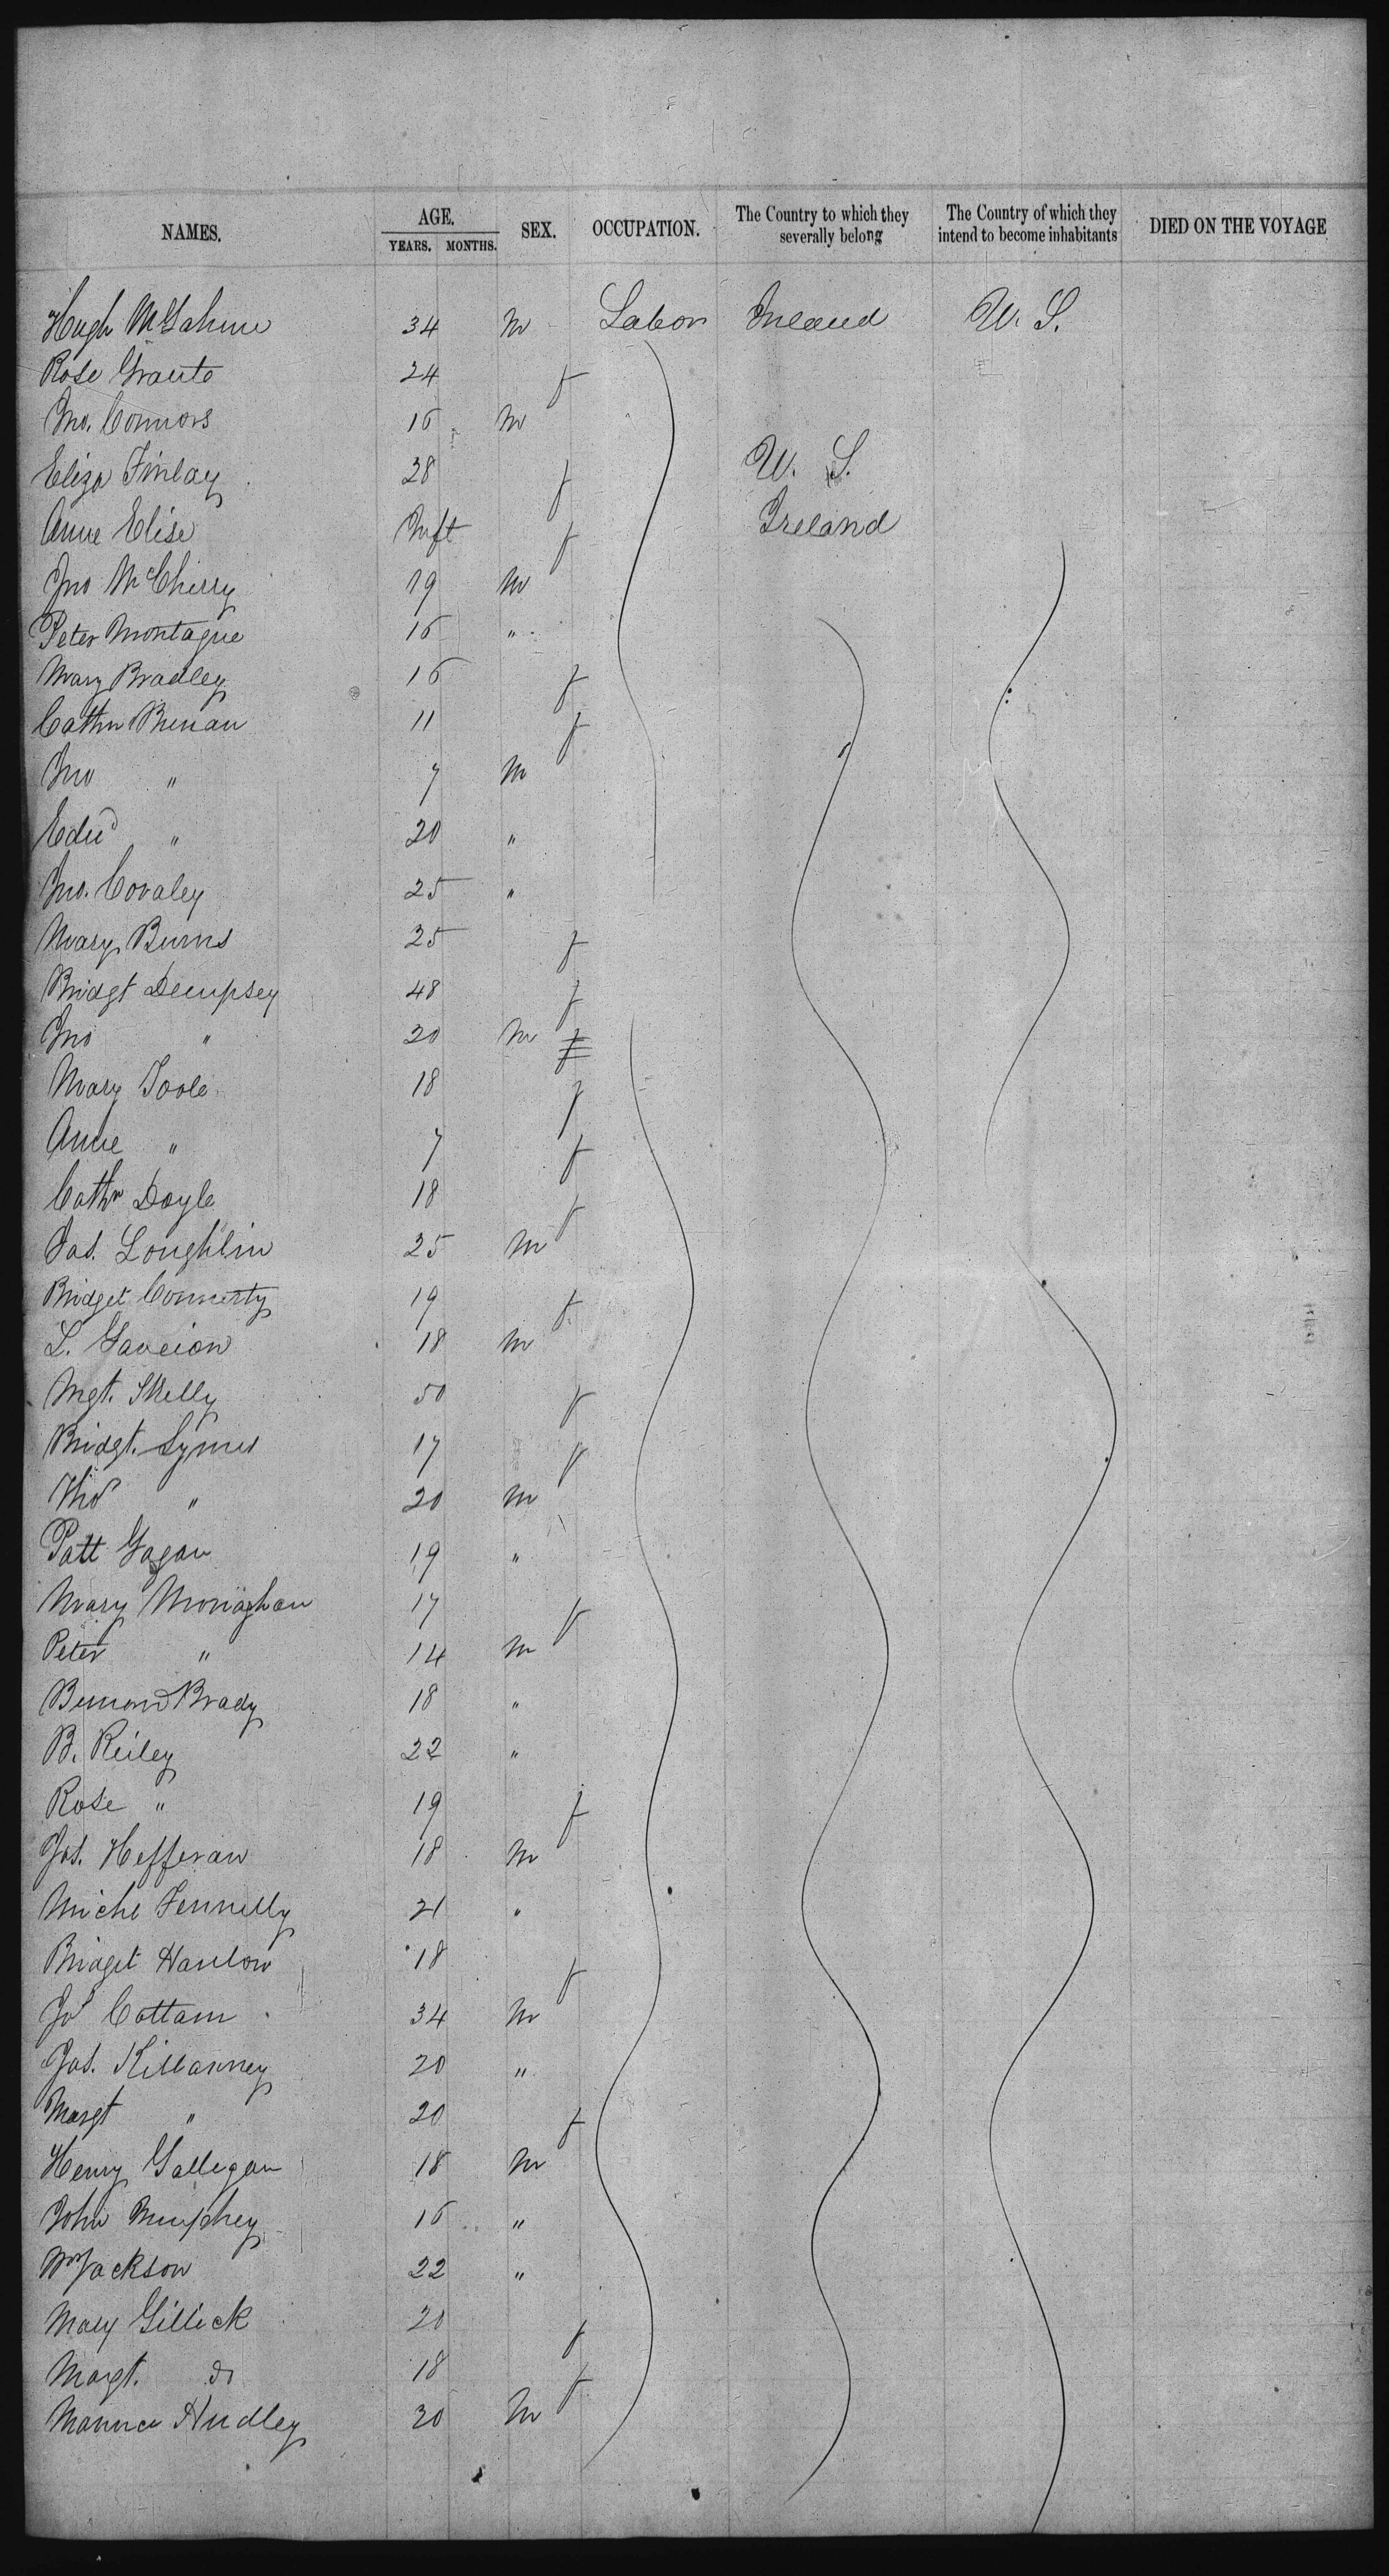 NAMES. AGE. YEARS. MONTHS. SEX. OCCUPATION. The Country to which they severally belong The Country of which they intend to become inhabitants DIED ON THE VOYAGE
Hugh McGahue 34 m Labor Ireland U. S.
Rose Grante 24 f
Jno. Connors 16 m
Eliza Finlay 28 f U. S.
Anne Elise Inft f Ireland
Jno McCherry 19 m
Peter Montague 16 "
Mary Bradley 16 f
Cathn Brenan 11 f
Jno " 7 m
Edwd " 20 "
Jno. Covaley 25 "
Mary Burns 25 f
Bridgt Dempsey 48 f
Jno " 20 m f
Mary Toole 18 f
Anne " 7 f
Cathn Doyle 18 f
Jas. Loughlin 25 m
Bridget Connerty 19 f
L. 18 m
Mgt. Skelly 50 f
Bridgt. Lynes 17 f
Thos " 20 m
Patt Gagan 19 "
Mary Monaghan 17 f
Peter " 14 m
Brady 18 "
B. Reiley 22 "
Rose " 19 f
Jas. Hefferan 18 m
Michl Fennelly 21 "
Bridget Hanlow 18 f
Jos Cottam 34 m
Jas. Killanney 20 "
Margt " 20 f
Henry Gallegan 18 m
John Murphey 16 "
Wm Jackson 22 "
Mary Gillick 20 f
Margt. do 18 f
Maurice Hudley 30 m